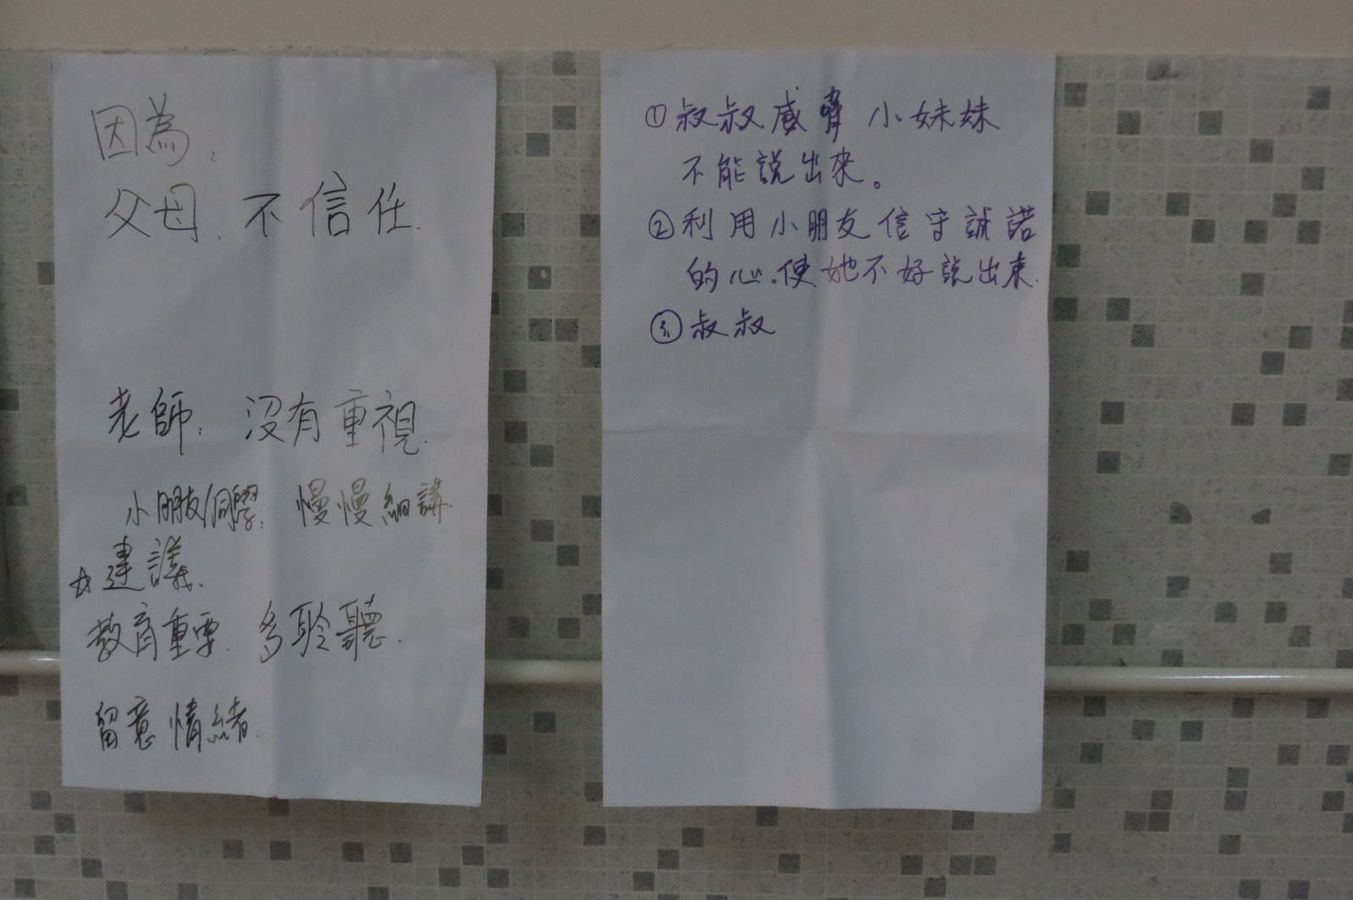 因為:
父母. 不信任.
老師: 沒有重視.
小朋友/同學: 慢慢細講.
☆建議.
教育重要. 多聆聽.
留意情緒.
①叔叔威脅 小妹妹
不能說出來。
②利用小朋友信守誠諾
的心.使她不好說出來.
③叔叔